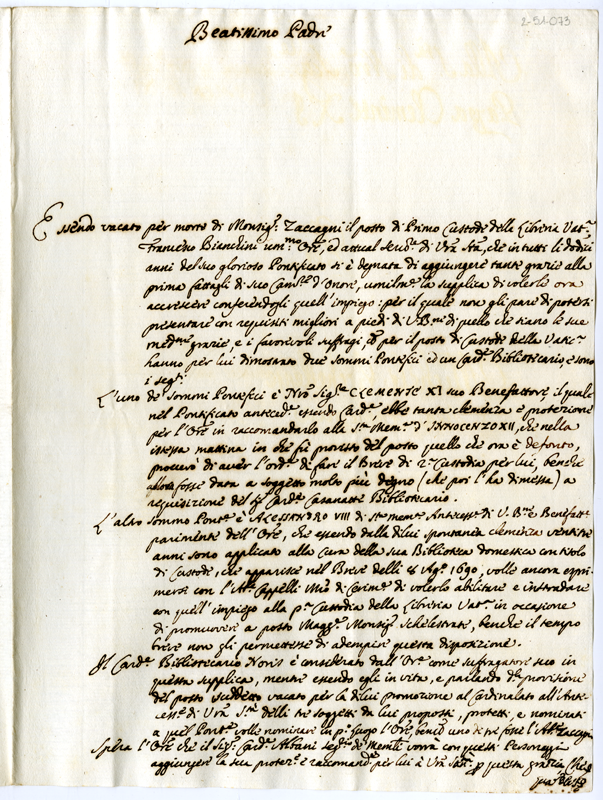 2-51-073
Beatissimo Padre
Essendo vacato per morte di Monsig.r Zaccagni il posto di Primo Custode della Libreria Vat.na
Francesco Bianchini um.mo Ore, ed attual Serv.e di Vra Stà, che in tutti li dodici
anni del suo glorioso Pontificato si è degnata di aggiungere tante grazie alla
prima fattagli di suo Cam.re d'Onore, umilm.te la supplica di volerle ora
accrescere conferendogli quell'impiego: per il quale non gli pare di potersi
presentare con requisiti migliori a piedi di V. B.ne di quello che siano le sue
med.me grazie, e i favorevoli suffragi, che per il posto di Custode della Vatic.a
hanno per lui dimostrato due Sommi Pontefici ed un Card.e Bibliotecario, e sono
i seg.ti
L'uno de Sommi Pontefici è Nro Sig.re CLEMENTE XI suo Benefattore, il quale
nel Pontificato anteced.e essendo Card.e, ebbe tanta clemenza e protezione
per l'Ore in raccomandarlo alla S.ta Mem.a d'INNOCENZO XII, che nella
istessa mattina in che fù provisto del posto quello che ora è defonto,
procurò di aver l'ord.e di fare il Breve di 2.a Custodia per lui, benche
allora fosse data a soggetto molto più degno (che poi l'ha dimessa) a
requisizione del Card.e Casanatte Bibliotecario.
L'altro Sommo Pont.e è ALESSANDRO VIII di S.ta mem.a Antecess.e di V. B.ne e Benefatt.e
parimente dell'Ore, che essendo dalla dilui spontanea clemenza ventitre
anni sono applicato alla cura della sua Biblioteca domestica con titolo
di Custode, che apparisce nel Breve delli 8 Ag.o 1690, volle ancora espri-
mersi con l'Ab.e Cappelli Mro di Cerim.e di volerlo abilitare e instradare
con quell'impiego alla p.a Custodia della Libreria Vat.na in occasione
di promuovere a posto Magg.e Monsig.r Schelestrate, benche il tempo
breve non gli permettesse di adempire questa disposizione.
Il Card.e Bibliotecario Noris è considerato dall'Ore come suffragatore suo in
questa supplica, mentre essendo egli in vita, e parlando d.a provisione
del posto suddetto vacato per la dilui promozione al Cardinalato all'Ante-
cess.e di Vra S.tà delli tre soggetti da lui proposti, protetti, e nominati
a quel Pont.e volle nominare in p.o luogo l'Ore, benche uno di tre fosse l'Ab.e Zaccagni
Spera l'Ore che il Sig.r Card.e Albani Seg.rio de Mem.li vorrà con questi Personaggi
aggiungere la sua protez.e e raccomand.e per lui à Vra Stà. per questa grazia Che